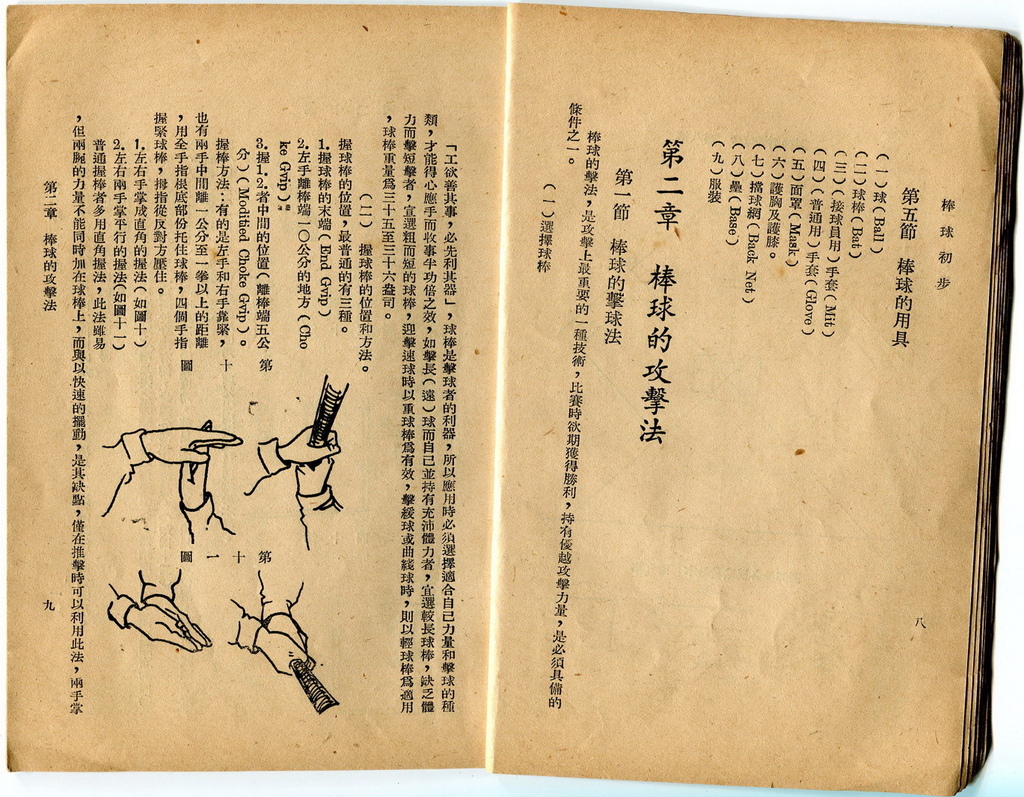 棒球初步
八
第五節　棒球的用具
(一)球(Ball)
(二)球棒(Bat)
(三)(接球員用)手套(Mit)
(四)(普通用)手套(Glove)
(五)面罩(Mask)
(六)護胸及護膝。
(七)擋球網(Back Net)
(八)壘(Base)
(九)服裝
第二章　棒球的攻擊法
第一節　棒球的擊球法
棒球的擊法，是攻擊上最重要的一種技術，比賽時欲期獲得勝利，持有優越攻擊力量，是必須具備的
條件之一。
(一)選擇球棒
「工欲善其事，必先利其器」，球棒是擊球者的利器，所以應用時必須選擇適合自己力量和擊球的種
類，才能得心應手而收事半功倍之效，如擊長(遠)球而自己並持有充沛體力者，宜選較長球棒，缺乏體
力而擊短擊者，宜選粗而短的球棒，迎擊速球時以重球棒爲有效，擊緩球或曲綫球時，則以輕球棒爲適用
，球棒重量爲三十五至三十六盎司。
(二)　握球棒的位置和方法。
握球棒的位置，最普通的有三種。
1.握球棒的末端(End Gvip)
2.左手離棒端一〇公分的地方(Cho
ke Gvip)。
3.握1.2.者中間的位置(離棒端五公
分)(Modfied Choke Gvip)。
握棒方法：有的是左手和右手靠緊，
也有兩手中間離一公分至一拳以上的距離
，用全手指根底部份托住球棒，四個手指
握緊球棒，拇指從反對方壓住。
1.左右手掌成直角的握法(如圖十)
2.左右兩手掌平行的握法(如圖十一)
普通握棒者多用直角握法，此法雖易
，但兩腕的力量不能同時加在球棒上，而與以快速的擺動，是其缺點，僅在推擊時可以利用此法，兩手掌
第十圖
第十一圖
第二章　棒球的攻擊法
九